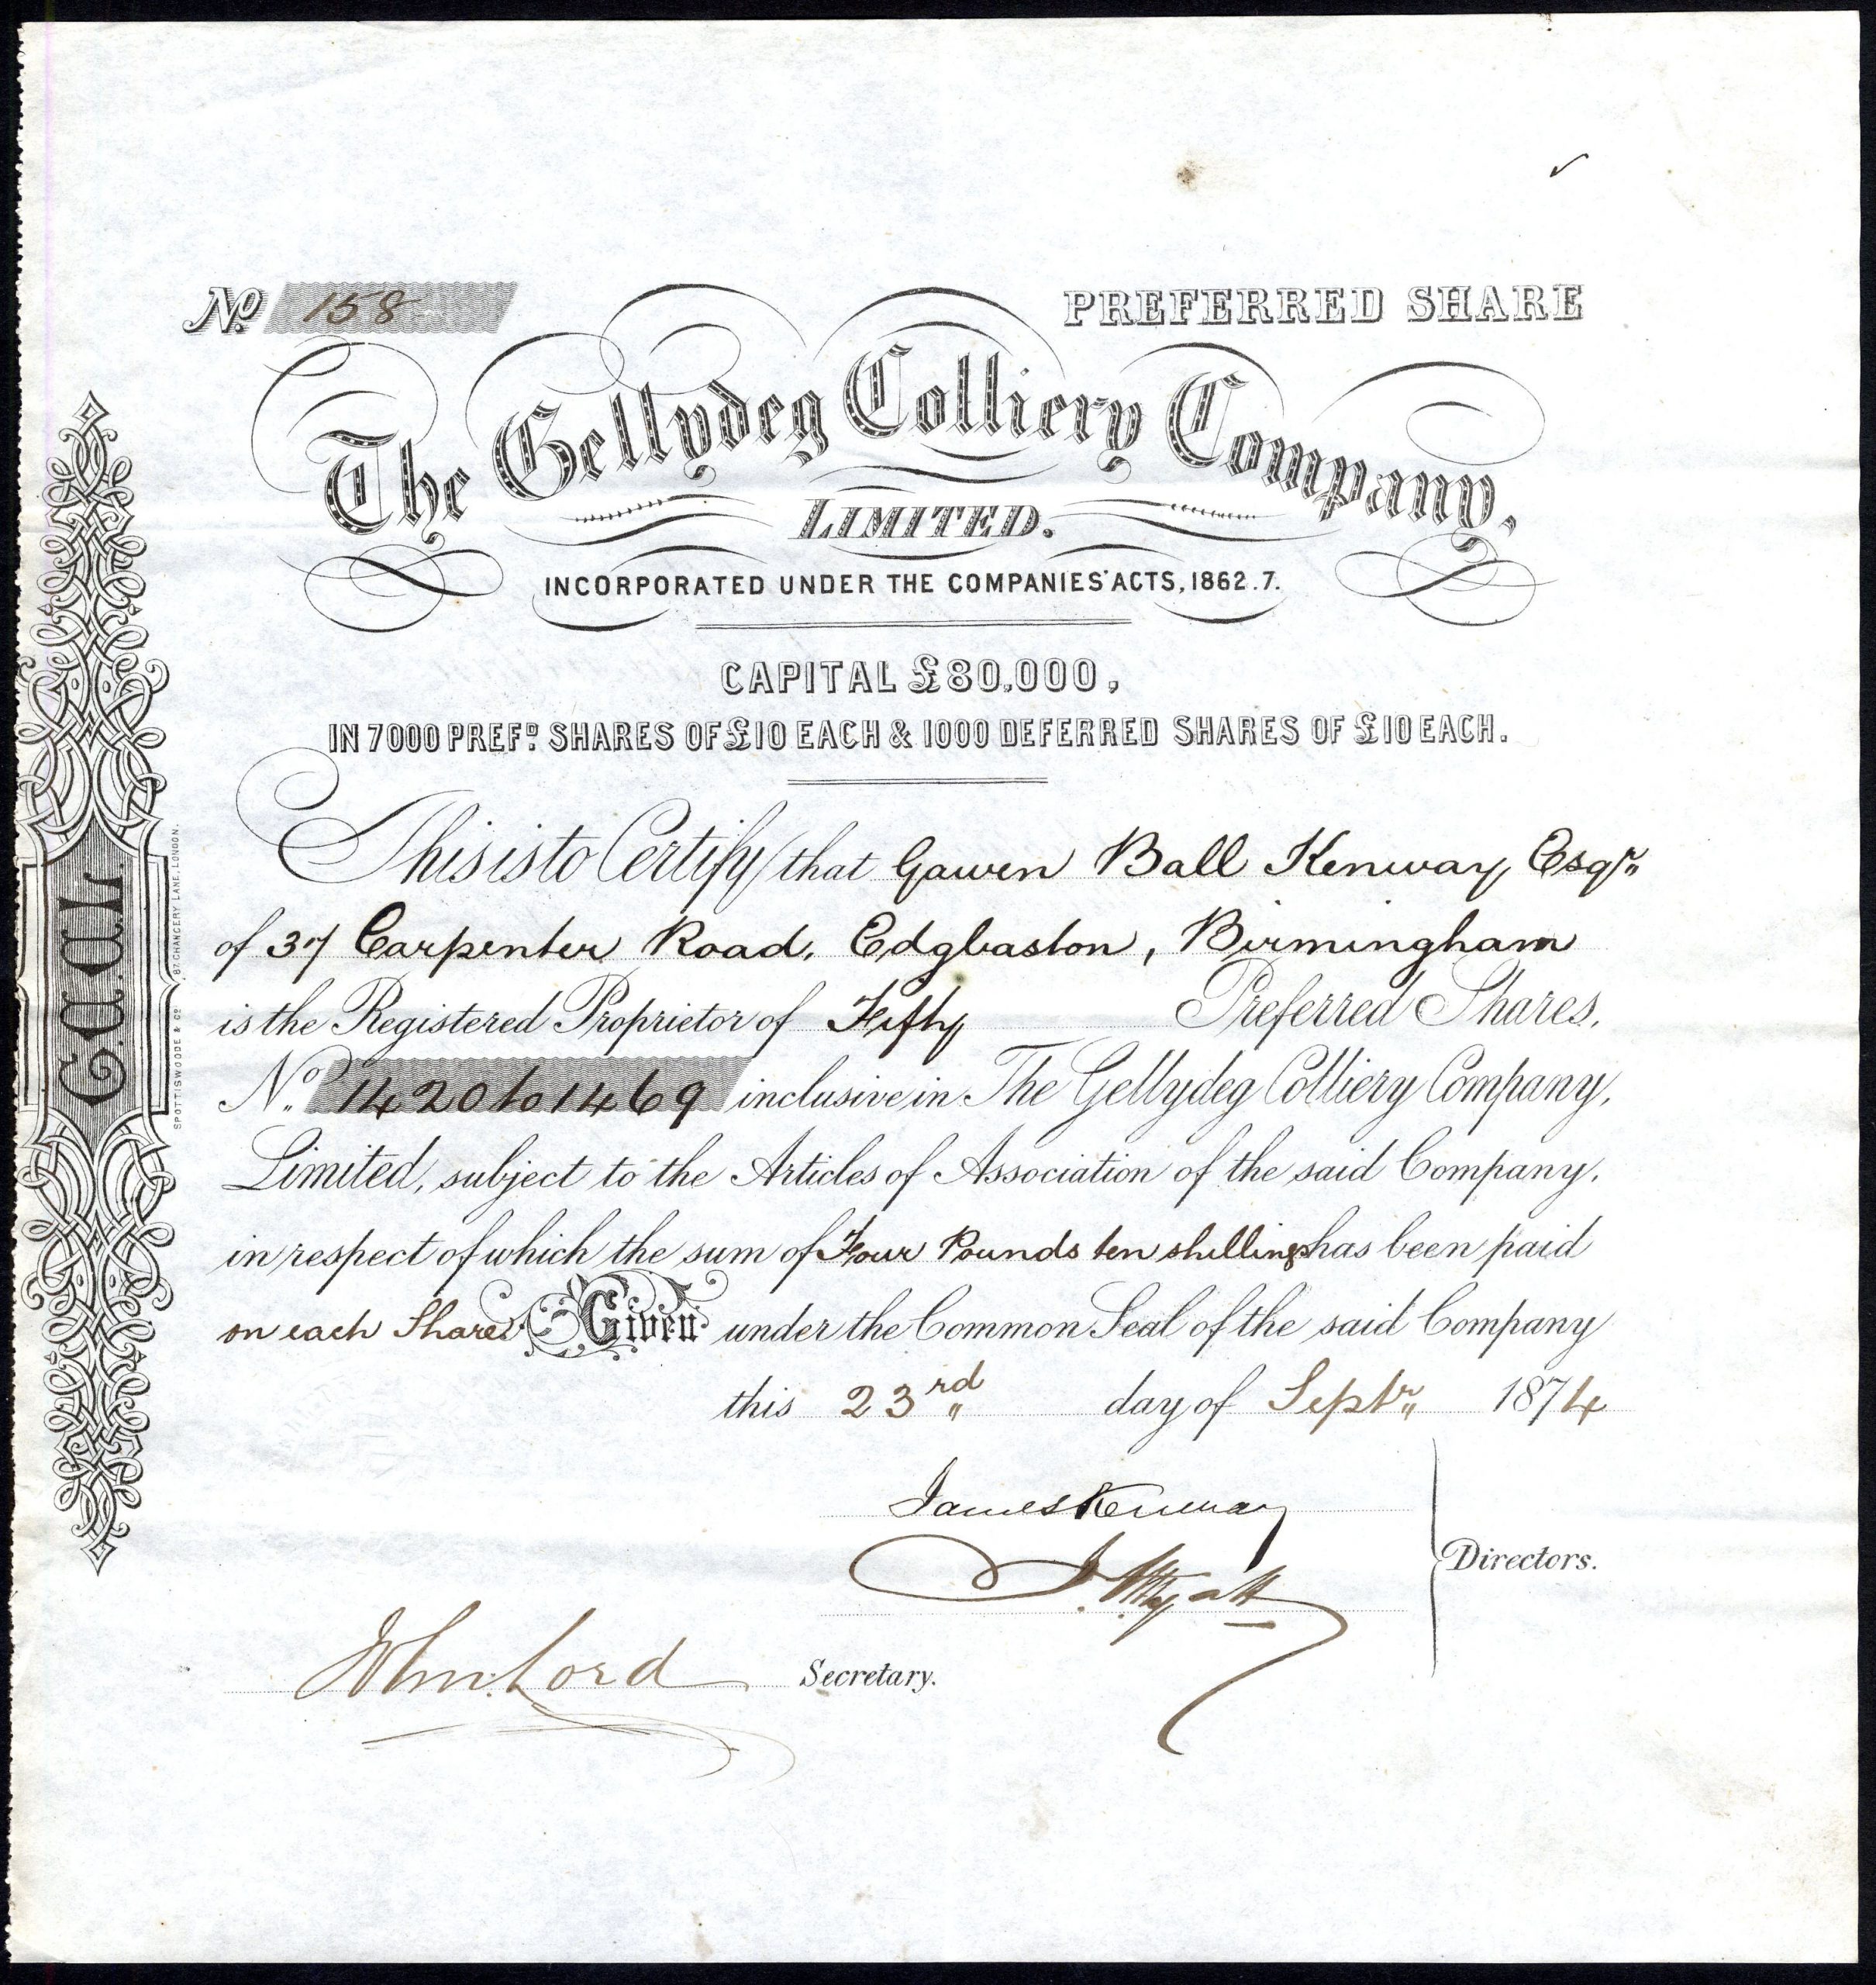 No. 158
PREFERRED SHARE
The Gellydeg Colliery Company,
LIMITED.
INCORPORATED UNDER THE COMPANIES' ACTS, 1862.7.
CAPITAL £80,000,
IN 7000 PREFD. SHARES OF £10 EACH & 1000 DEFERRED SHARES OF £10 EACH.
This is to Certify that Gawen Ball Kenway, Esqr.
of 37 Carpenter Road, Edgbaston, Birmingham
is the Registered Proprietor of Fifty Preferred Shares,
No. 1420 to 1469 inclusive in The Gellydeg Colliery Company,
Limited, subject to the Articles of Association of the said Company,
in respect of which the sum of Four Pounds ten shillings has been paid
on each Share. Given under the Common Seal of the said Company
this 23rd day of Septr. 1874
James Kenway
J. Wyatt
Directors.
Jno. Lord
Secretary.
G.C.C.L.
SPOTTISWOODE & CO. 87, CHANCERY LANE, LONDON.